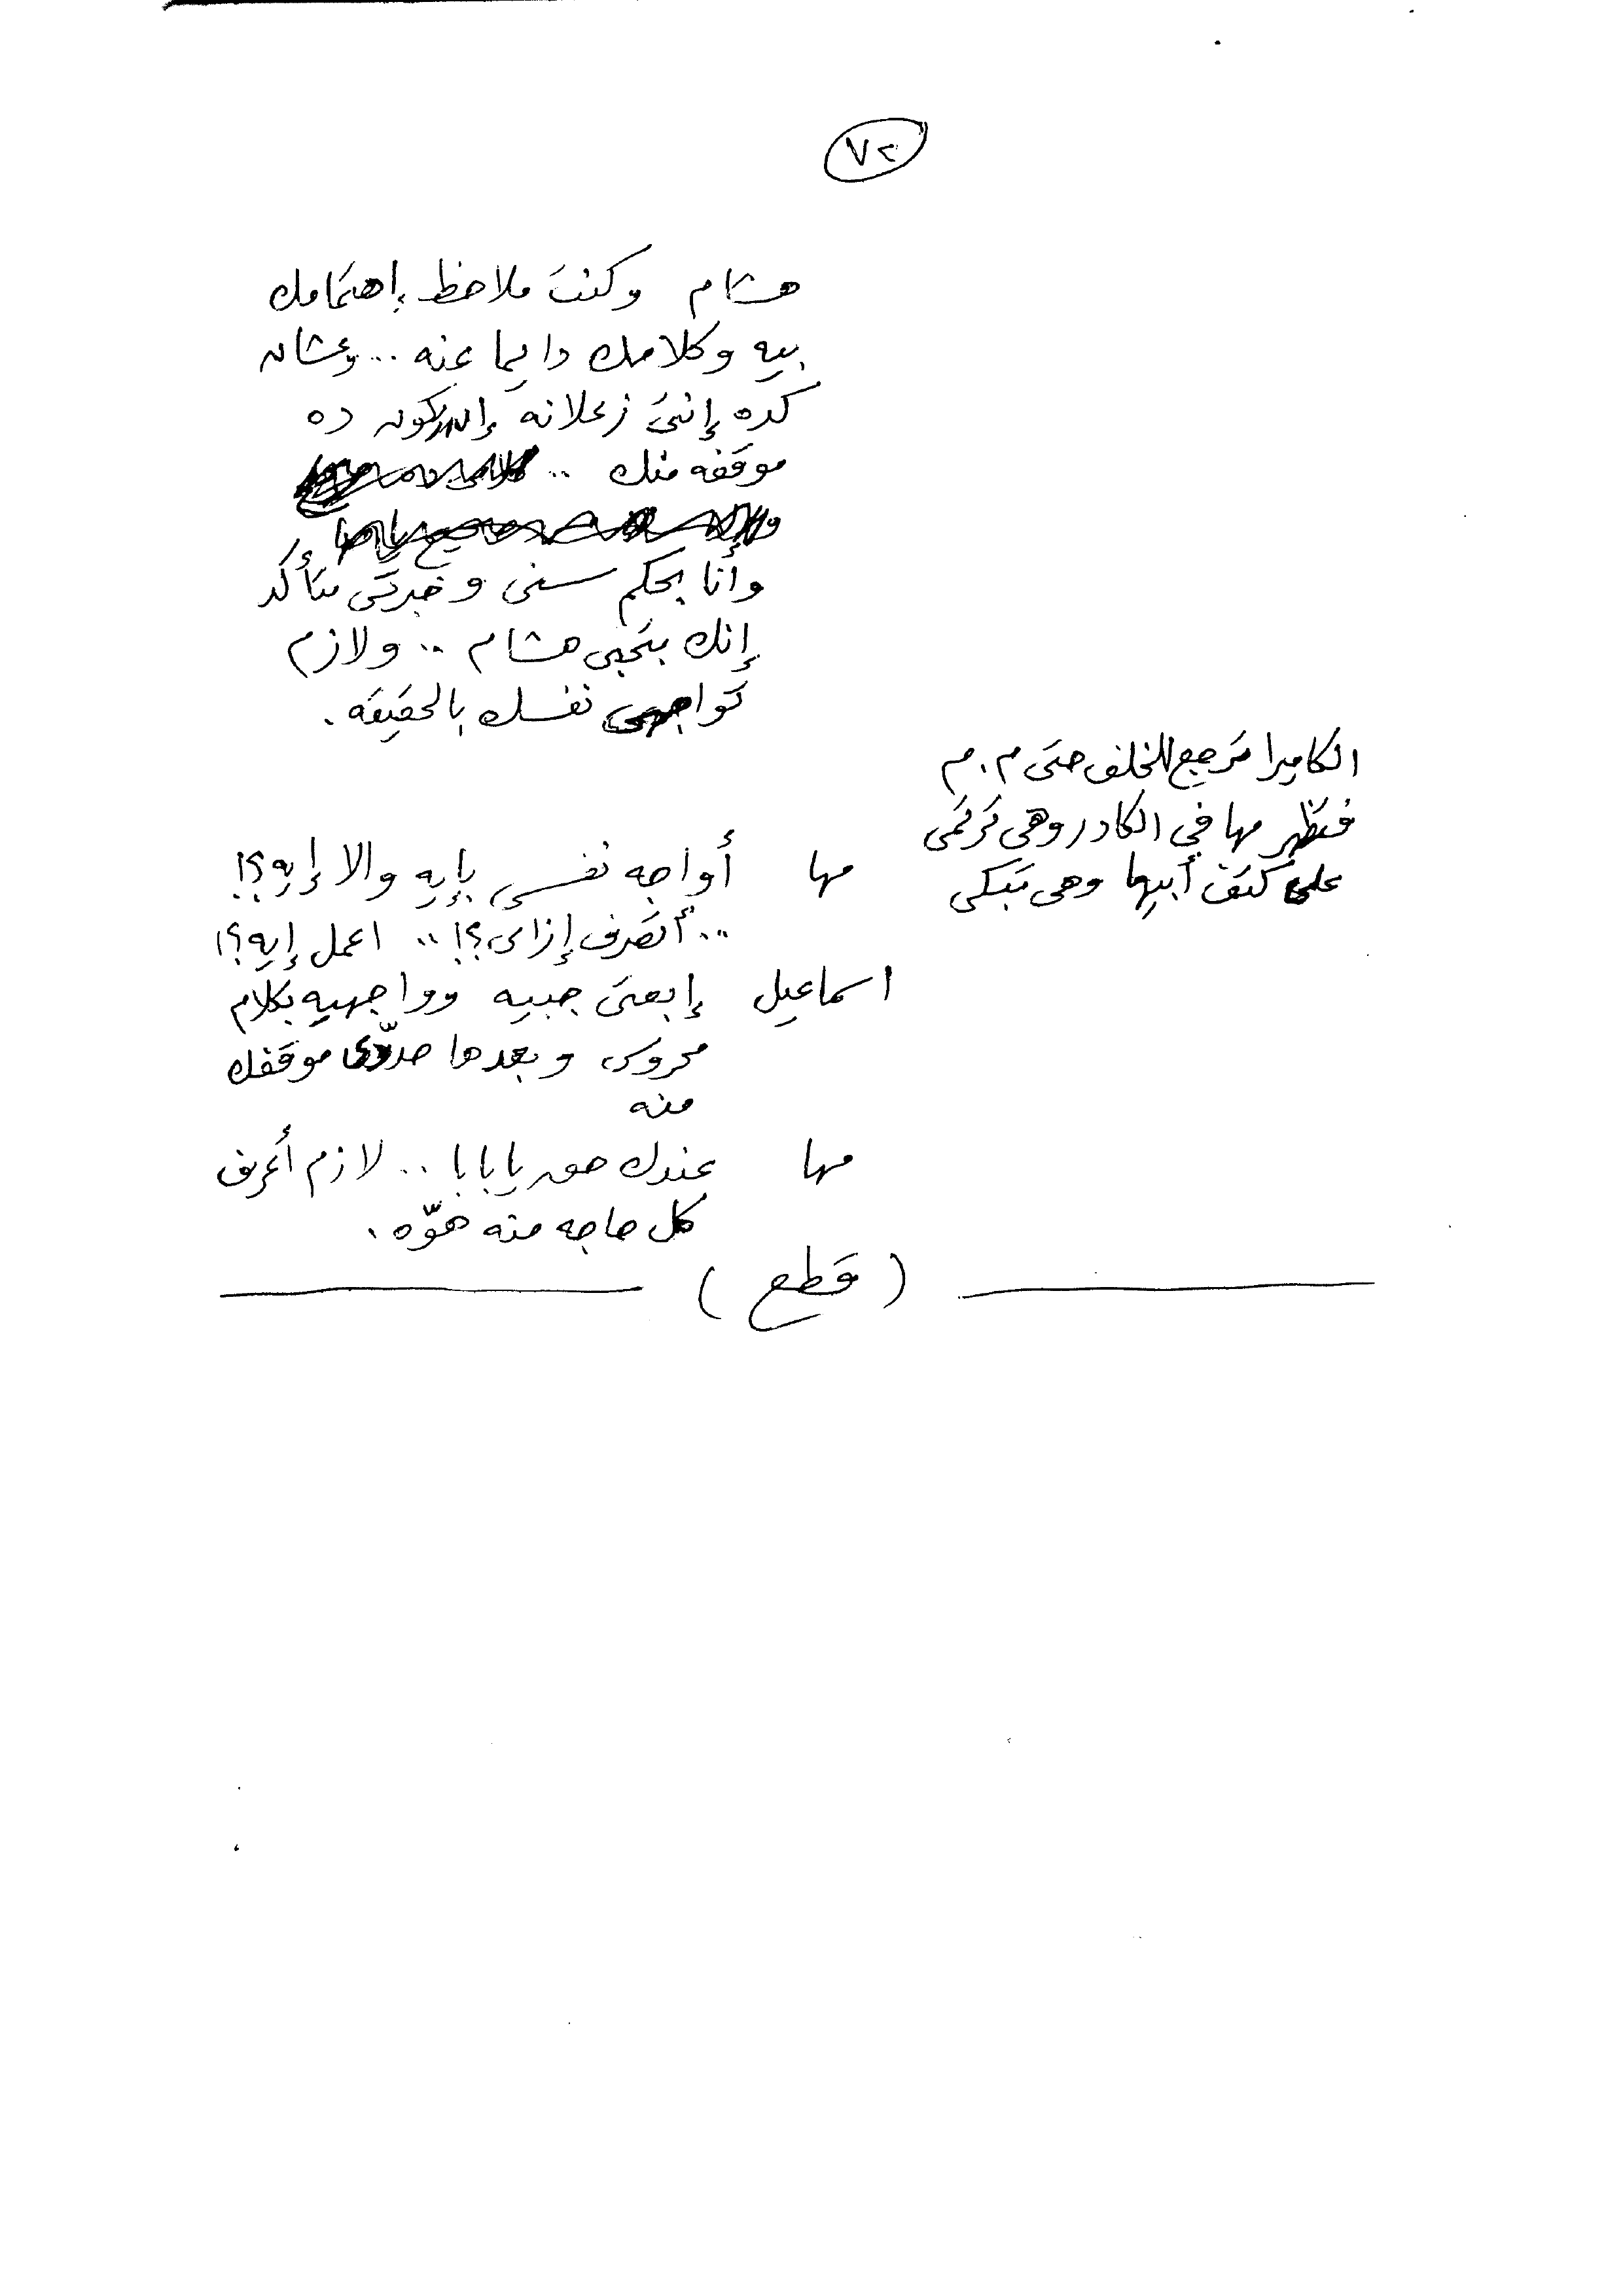 ٧٢
هشام وكنت ملاحظ إهتمامك
بيه وكلامك دايما عنه .. وعشان
كده إنتى زعلانه إن يكون ده
موقفه منك ..
وأنا بحكم سنى وخبرتى متأكد
إنك بتحبى هشام .. ولازم
تواجهى نفسك بالحقيقه .
الكاميرا ترجع للخلف حتى م . م
فتظهر مها في الكادر وهى ترتمى
على كتف أبيها وهى تبكى
مها أواجه نفسى بإيه والا إيه ؟!
.. أتصرف إزاى ؟! .. اعمل إيه ؟!
اسماعيل إبعتى جيبيه وواجهيه بكلام
محروس وبعدها حدّدى موقفك
منه
مها عندك حق يا بابا .. لازم أعرف
كل حاجه منه هوّه .
( قطع )